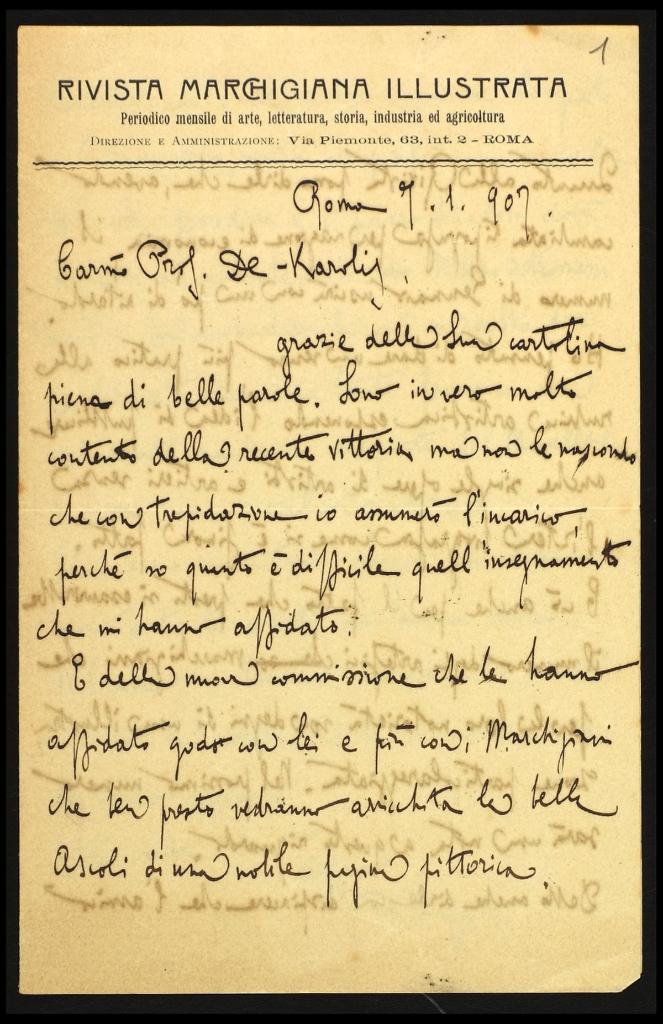 1
RIVISTA MARCHIGIANA ILLUSTRATA
Periodico mensile di arte, letteratura, storia, industria ed agricoltura
DIREZIONE E AMMINISTRAZIONE: Via Piemonte, 63, int. 2 - ROMA
Roma 7.1.907.
Carmo Prof. De-Karolis,
grazie della Sua cartolina
piena di belle parole. Sono in vero molto
contento della recente vittoria ma non le nascondo
che con trepidazione io assumerò l'incarico,
perchè so quanto è difficile quell'insegnamento
che mi hanno affidato.
E della nuova commissione che le hanno
affidato godo con lei e più con i Marchigiani
che ben presto vedranno aricchita la bella
Ascoli di una nobile pagina pittorica.